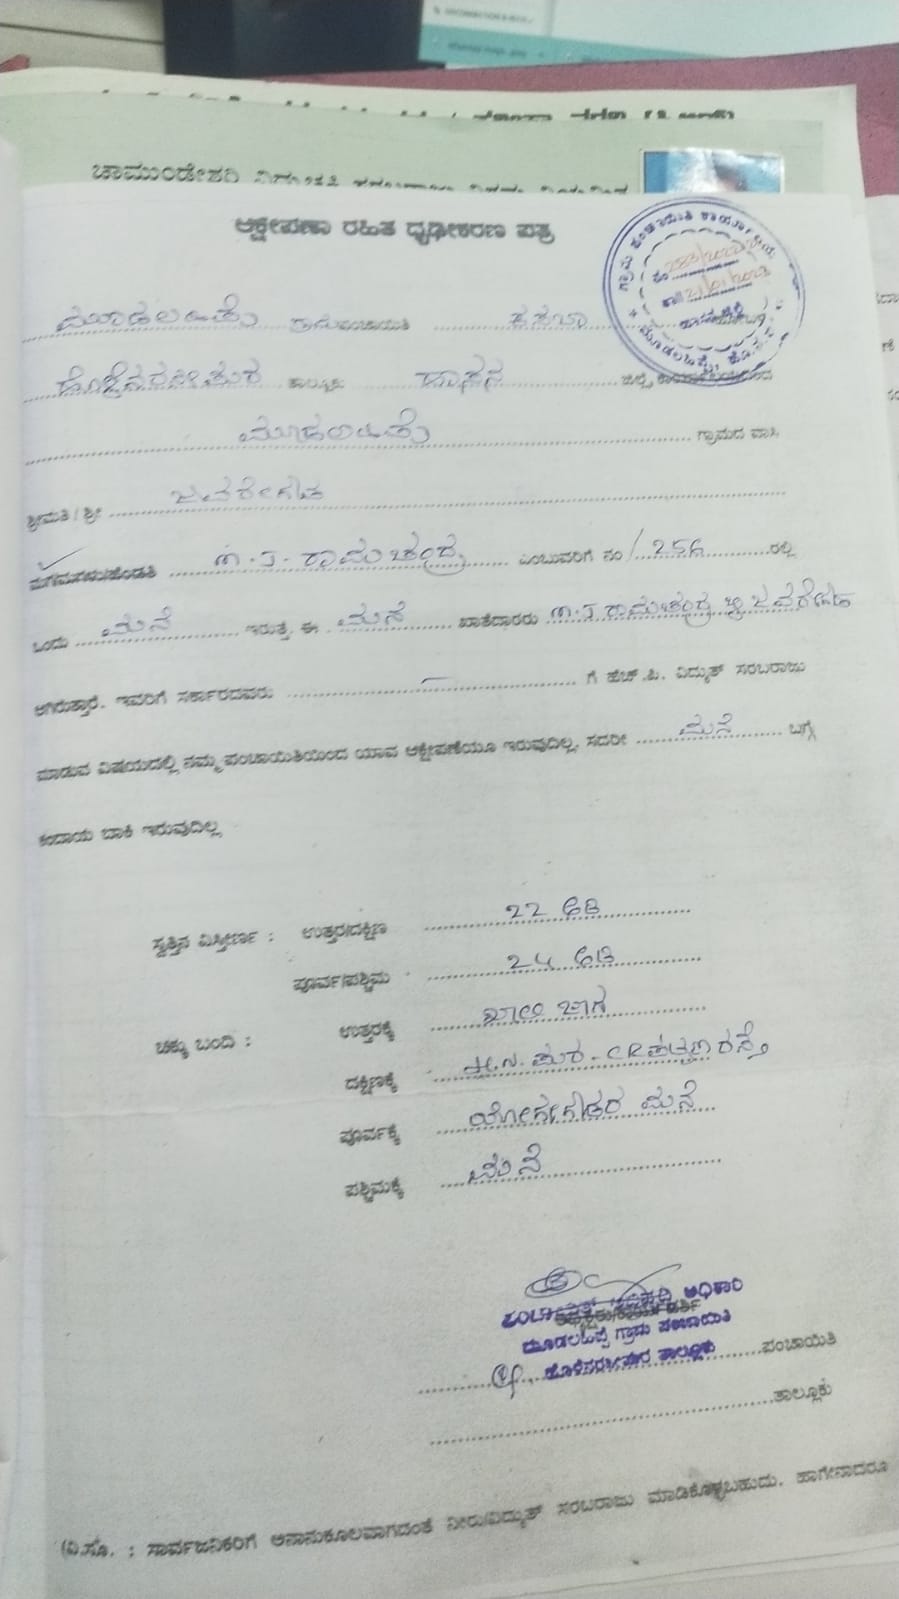 ಆಕ್ಷೇಪಣಾ ರಹಿತ ಧೃಢೀಕರಣ ಪತ್ರ
ಗ್ರಾಮ ಪಂಚಾಯಿತಿ ಕಾರ್ಯಾಲಯ
ಮೂಡಲಹಿಪ್ಪೆ ಗ್ರಾಮಪಂಚಾಯಿತಿ ಕಸಬಾ ಹೋಬಳಿ
ಹೊಳೆನರಸೀಪುರ ತಾಲ್ಲೂಕು ಹಾಸನ ಜಿಲ್ಲೆ
ಮೂಡಲಹಿಪ್ಪೆ ಗ್ರಾಮದ ವಾಸಿ
ಶ್ರೀಮತಿ / ಶ್ರೀ ಜವರೇಗೌಡ
ಮಗ/ಮಗಳು/ಹೆಂಡತಿ M.J. ರಾಮಚಂದ್ರ ಎಂಬುವರಿಗೆ ನಂ / 256 ರಲ್ಲಿ
ಒಂದು ಮನೆ ಇರುತ್ತೆ. ಈ ಮನೆ ಖಾತೆದಾರರು M.J ರಾಮಚಂದ್ರ ಜವರೇಗೌಡ
ಆಗಿರುತ್ತಾರೆ. ಇವರಿಗೆ ಸರ್ಕಾರದವರು — ಗೆ ಹೆಚ್.ಪಿ. ವಿದ್ಯುತ್ ಸರಬರಾಜು
ಮಾಡುವ ವಿಷಯದಲ್ಲಿ ನಮ್ಮ ಪಂಚಾಯಿತಿಯಿಂದ ಯಾವ ಆಕ್ಷೇಪಣೆಯೂ ಇರುವುದಿಲ್ಲ, ಸದರೀ ಮನೆ ಬಗ್ಗೆ
ಕಂದಾಯ ಬಾಕಿ ಇರುವುದಿಲ್ಲ
ಸ್ವತ್ತಿನ ವಿಸ್ತೀರ್ಣ : ಉತ್ತರ/ದಕ್ಷಿಣ 22 ಅಡಿ
ಪೂರ್ವ/ಪಶ್ಚಿಮ 24 ಅಡಿ
ಚಕ್ಕು ಬಂದಿ : ಉತ್ತರಕ್ಕೆ ಖಾಲಿ ಜಾಗ
ದಕ್ಷಿಣಕ್ಕೆ H.N. ಪುರ - ರಸ್ತೆ
ಪೂರ್ವಕ್ಕೆ ಯೋಗೇಗೌಡರ ಮನೆ
ಪಶ್ಚಿಮಕ್ಕೆ ಮನೆ
ಪಂಚಾಯತ್ ಅಭಿವೃದ್ಧಿ ಅಧಿಕಾರಿ
ಮೂಡಲಹಿಪ್ಪೆ ಗ್ರಾಮ ಪಂಚಾಯಿತಿ
ಹೊಳೆನರಸೀಪುರ ತಾಲ್ಲೂಕು ಪಂಚಾಯಿತಿ
ತಾಲ್ಲೂಕು
(ವಿ.ಸೂ. : ಸಾರ್ವಜನಿಕರಿಗೆ ಅನಾನುಕೂಲವಾಗದಂತೆ ನೀರು/ವಿದ್ಯುತ್ ಸರಬರಾಜು ಮಾಡಿಕೊಳ್ಳಬಹುದು. ಹಾಗೇನಾದರೂ